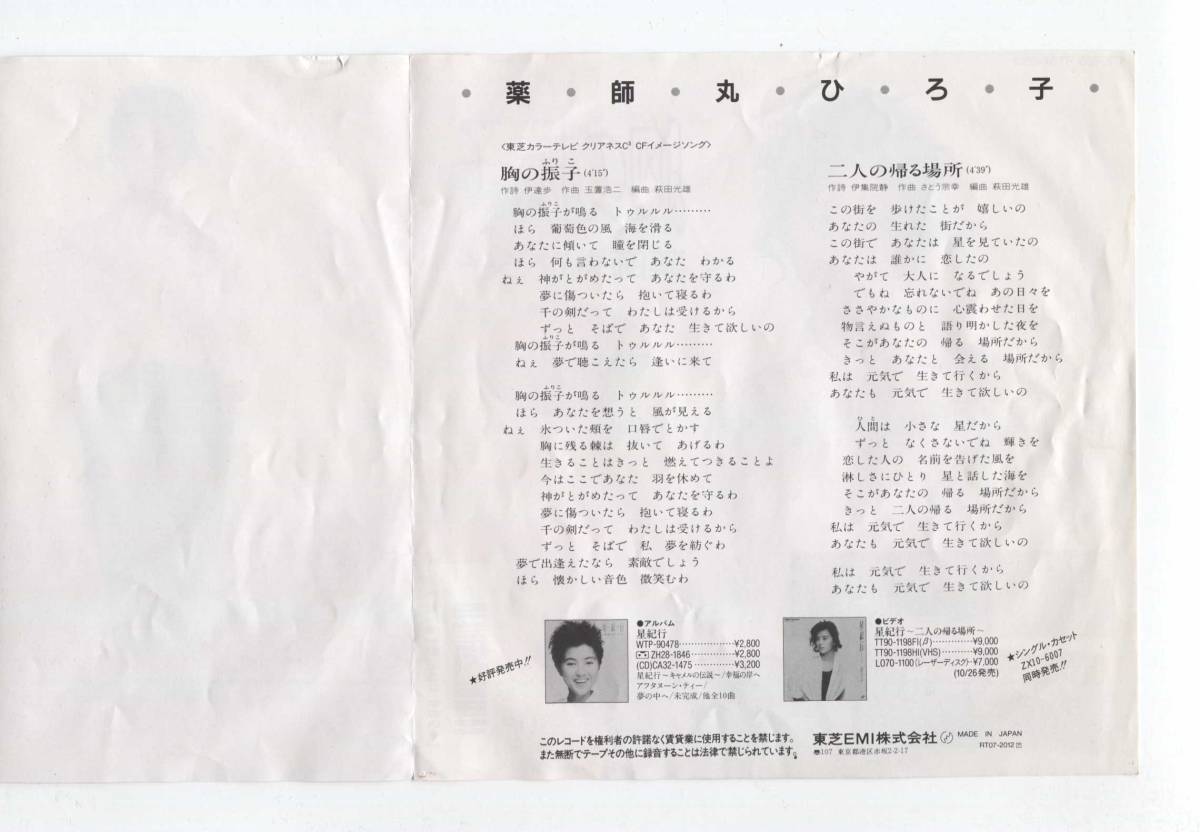 ・薬・師・丸・ひ・ろ・子・
〈東芝カラーテレビ クリアネスC³ CFイメージソング〉
胸の振子(4'15")
ふりこ
作詩 伊達歩 作曲 玉置浩二 編曲 萩田光雄
ふりこ
胸の振子が鳴る トゥルルル………
ほら 葡萄色の風 海を滑る
あなたに傾いて 瞳を閉じる
ほら 何も言わないで あなた わかる
ねぇ 神がとがめたって あなたを守るわ
夢に傷ついたら 抱いて寝るわ
千の剣だって わたしは受けるから
ずっと そばで あなた 生きて欲しいの
ふりこ
胸の振子が鳴る トゥルルル………
ねぇ 夢で聴こえたら 逢いに来て
ふりこ
胸の振子が鳴る トゥルルル………
ほら あなたを想うと 風が見える
ねぇ 氷ついた頬を 口唇でとかす
胸に残る棘は 抜いて あげるわ
生きることはきっと 燃えてつきることよ
今はここであなた 羽を休めて
神がとがめたって あなたを守るわ
夢に傷ついたら 抱いて寝るわ
千の剣だって わたしは受けるから
ずっと そばで 私 夢を紡ぐわ
夢で出逢えたなら 素敵でしょう
ほら 懐かしい音色 微笑むわ
二人の帰る場所(4'39")
作詩 伊集院静 作曲 さとう宗幸 編曲 萩田光雄
この街を 歩けたことが 嬉しいの
あなたの 生れた 街だから
この街で あなたは 星を見ていたの
あなたは 誰かに 恋したの
やがて 大人に なるでしょう
でもね 忘れないでね あの日々を
ささやかなものに 心震わせた日を
物言えぬものと 語り明かした夜を
そこがあなたの 帰る 場所だから
きっと あなたと 会える 場所だから
私は 元気で 生きて行くから
あなたも 元気で 生きて欲しいの
ひと
人間は 小さな 星だから
ずっと なくさないでね 輝きを
恋した人の 名前を告げた風を
淋しさにひとり 星と話した海を
そこがあなたの 帰る 場所だから
きっと 二人の帰る 場所だから
私は 元気で 生きて行くから
あなたも 元気で 生きて欲しいの
私は 元気で 生きて行くから
あなたも 元気で 生きて欲しいの
★好評発売中!!
●アルバム
星紀行
WTP-90478……………¥2,800
ZH28-1846……………¥2,800
(CD)CA32-1475…………¥3,200
星紀行〜キャメルの伝説〜/幸福の岸へ
アフタヌーン・ティー/
夢の中へ/未完成/他全10曲
●ビデオ
星紀行〜二人の帰る場所〜
TT90-1198FI(β)…………¥9,000
TT90-1198HI(VHS)………¥9,000
L070-1100(レーザーディスク)‥¥7,000
(10/26発売)
★シングル・カセット
ZX10-6007
同時発売!!
このレコードを権利者の許諾なく賃貸業に使用することを禁じます。
また無断でテープその他に録音することは法律で禁じられています。
東芝EMI株式会社
MADE IN JAPAN
〒107 東京都港区赤坂2-2-17
RT07-2012